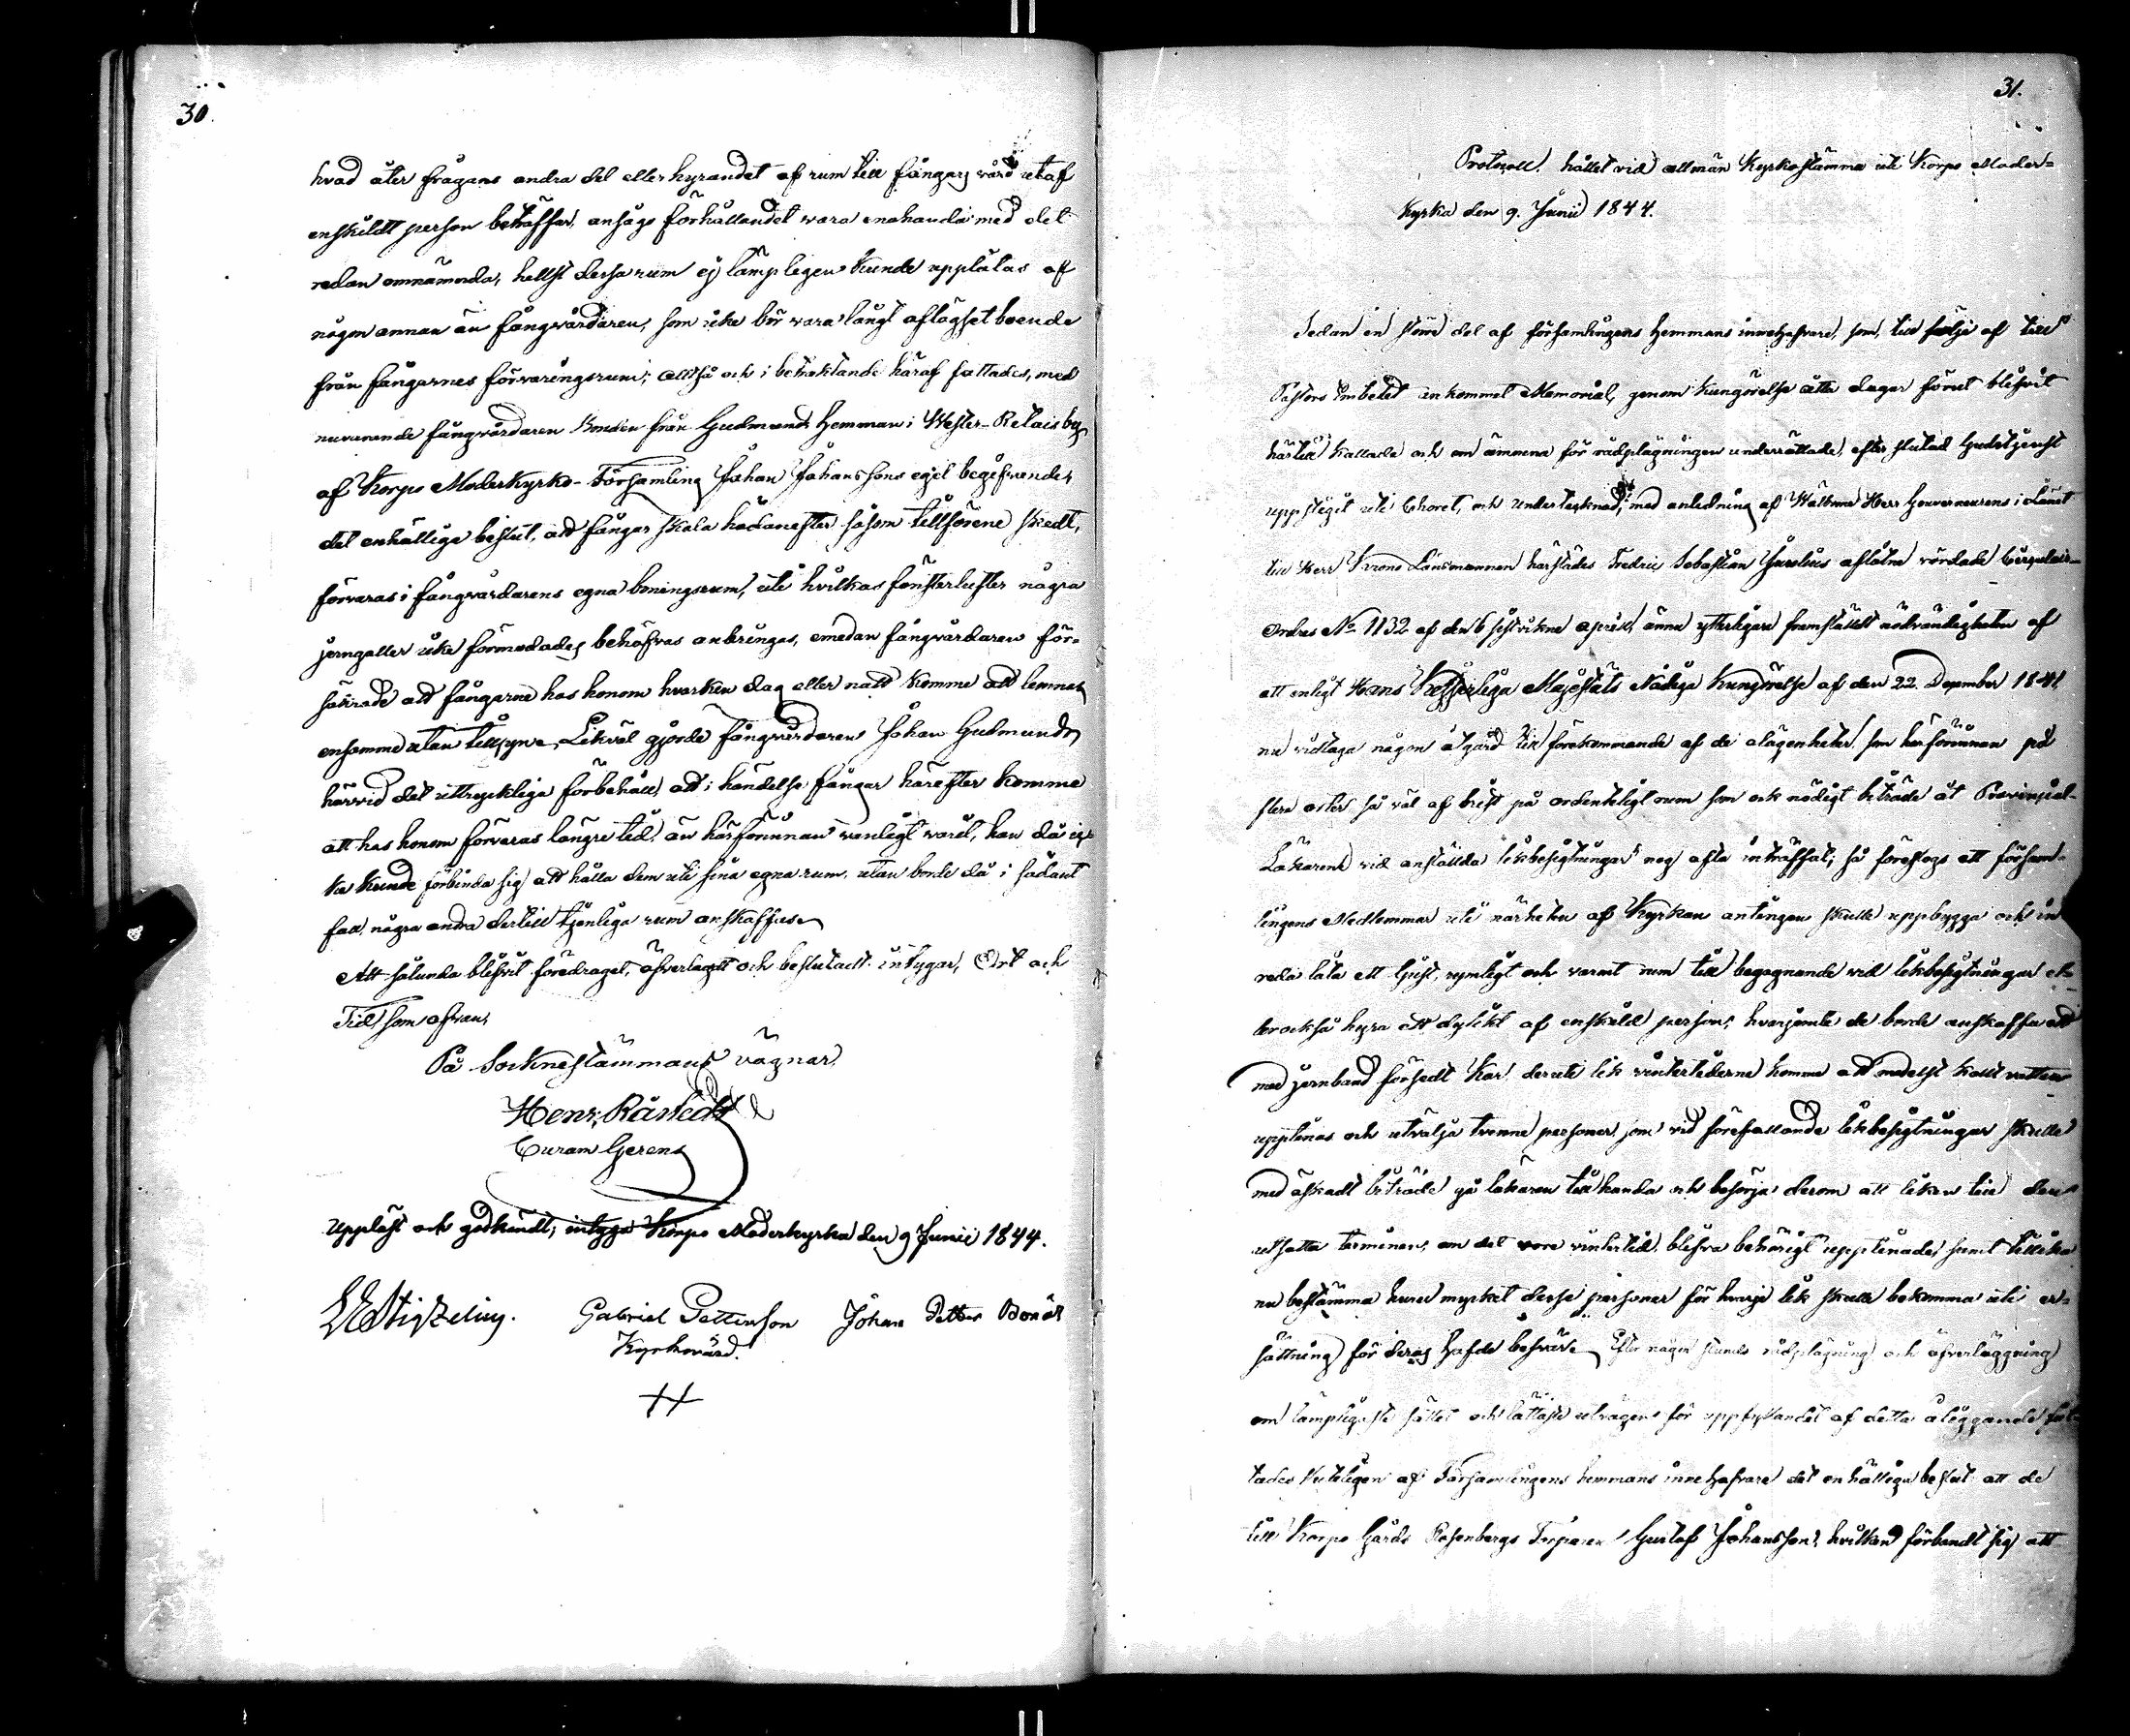 30.
hvad åter frågans andra del eller hyrandet af rum till fångars vård utaf
enskildt person beträffar, ansågs förhållandet wara enahanda med det
redan omnämnda, hellst dessa rum ej lämpligen kunde upplåtas af
någon annan än fångvårdaren, som icke bör wara långt aflägset boende
från fångarnes förvaringsrum; alltså och i betraktande häraf fattades, med
nuvarande fångvårdaren Bonden från Gudmunds Hemman i Wester-Retais by
af Korpo Moderkyrko-Församling Johan Johanssons eget begifvande,
det enhälliga beslut, att fångar skola hädanefter såsom tillförene skedt,
förvaras i fångvårdarens egna boningsrum, uti hvilkas fönsterlufter några
jerngaller icke förmodades behöfvas anbringas, emedan fångvårdaren för-
säkrade att fångarne hos honom hvarken dag eller natt komme att lemnas
ensamme utan tillsyn. Likväl gjorde fångvårdaren Johan Gudmunds
härvid det uttryckliga förbehåll, att i händelse fångar härefter komme
att hos honom förvaras längre tid, än härförinnan vanligt varit, han då ic-
ke kunde förbinda sig att hålla dem uti sina egna rum, utan borde då i sådant
fall några andra dertill tjenliga rum anskaffas.
Att sålunda blifvit föredraget, öfverlagdt och beslutadt intygar, Ort och
Tid som ofvan.
På Socknestämmans vägnar
Henr. Råstedt
Curam Gerens
Uppläst och godkändt, intyga Korpo Moderkyrka den 9 Junii 1844.
Gabriel Petterson Johan Petter
Kyrkovärd.
31.
Protocoll, hållet vid allmän Kyrkostämma uti Korpo Moder-
Kyrka den 9. Junii 1844.
Sedan en större del af församlingens Hemmans innehafvare, som, till följe af till
Pastors Embetet ankommet Memorial, genom kungörelse åtta dagar förut blifvit
härtill kallade och om ämnena för rådplägningen underrättade, efter slutad Gudstjenst
uppstigit uti Choret, och undertecknad, med anledning af Wälborne Herr Gouverneurens i Länet
till Herr Krono Länsmannen härstädes Fredric Sebastian aflåtne vördade Cirqulair-
Ordres No 1132 af den 6 sistvikne april, ännu ytterligare framställdt nödvändigheten af
att enligt Hans Kejserliga Majestäts Nådiga Kungörelse af den 22 December 1841,
nu vidtaga någon åtgärd till förekommande af de olägenheter, som härförinnan på
flere orter så väl af brist på ordentligt rum som ock nödigt biträde åt Provinsial-
Läkarene vid anställda likbesigtningar nog ofta inträffat; så föreslogs att försam-
lingens Medlemmar uti närheten af Kyrkan antingen skulle uppbygga och in
reda låta ett ljust, rymligt och varmt rum till begagnande vid likbesigtningar el-
ler också hyra ett dylikt af enskild person; hvarjemte de borde anskaffa ett
med jernband försedt Kar, deruti lik vintertiderne komme att medelst kallt vatten
upptinas och utvälja tvenne personer, som vid förefallande likbesigtningar skulle
med äskadt biträde gå läkaren tillhanda och besörja derom att liken till den
utsatta terminen, om det vore vintertid, blefve behörigt upptinade, samt tillika
nu bestämma huru mycket desse personer för hvarje lik skulle bekomma uti er-
sättning för deras hafde besvär. Efter någon stunds rådplägning och öfverläggning
om lämpligaste sättet och lättaste utvägen för uppfyllandet af detta åliggande fat-
tades slutligen af Församlingens hemmans innehafvare det enhälliga beslut att de
till Korpo Gårds Rosenbergs Torparen Gustaf Johansson, hvilken förbandt sig att